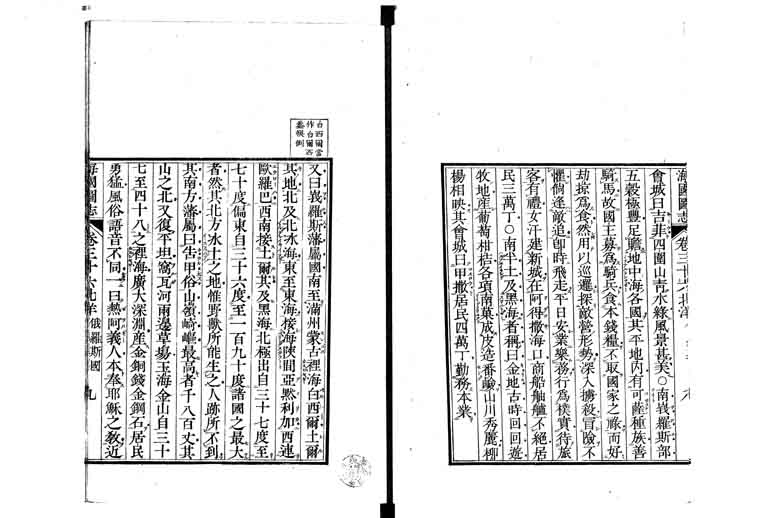 海國圖志
卷三十六
會城曰吉菲四圍山青水綠風景甚美〇南峩羅斯部
五穀極豐足贍地中海各國其平地內有可薩種族善
騎馬故國王募爲騎兵食本錢糧不取國家之祿而好
劫掠爲食然用以巡邏探敵營形勢深入擄殺冒險不
懼倘逢敵追卽時飛走平日安業樂務行爲樸實待旅
客有禮女汗建新城在阿得撒海口商船舳艫不絕居
民三萬丁〇南半土及黑海者稱曰金地古時回回遊
牧地產葡萄柑桔各項南菓成皮造番鹼山川秀麗柳
楊相映其會城曰甲撒居民四萬丁勤務本業
白西爾當
作白爾西
蓋誤倒
又曰峩羅斯藩屬國南至滿州蒙古裡海白西爾土爾
其地北及北氷海東至東海接海陜間亞默利加西連
歐羅巴西南接土爾其及黑海北極出自三十七度至
七十度偏東自三十六度至一百九十度諸國之最大
者然其北方氷土之地惟野獸所能生之人跡所不到
其南方藩屬曰告甲俗山嶺崎嶇最高者千八百丈其
山之北又復平坦窩瓦河兩邊草場玉海金山自三十
七至四十八之裡海廣大深淵産金銅錢金鋼石居民
勇猛風俗語音不同一曰熱阿義人本奉耶穌之敎近
海國圖志
卷三十六北洋 俄羅斯國 九